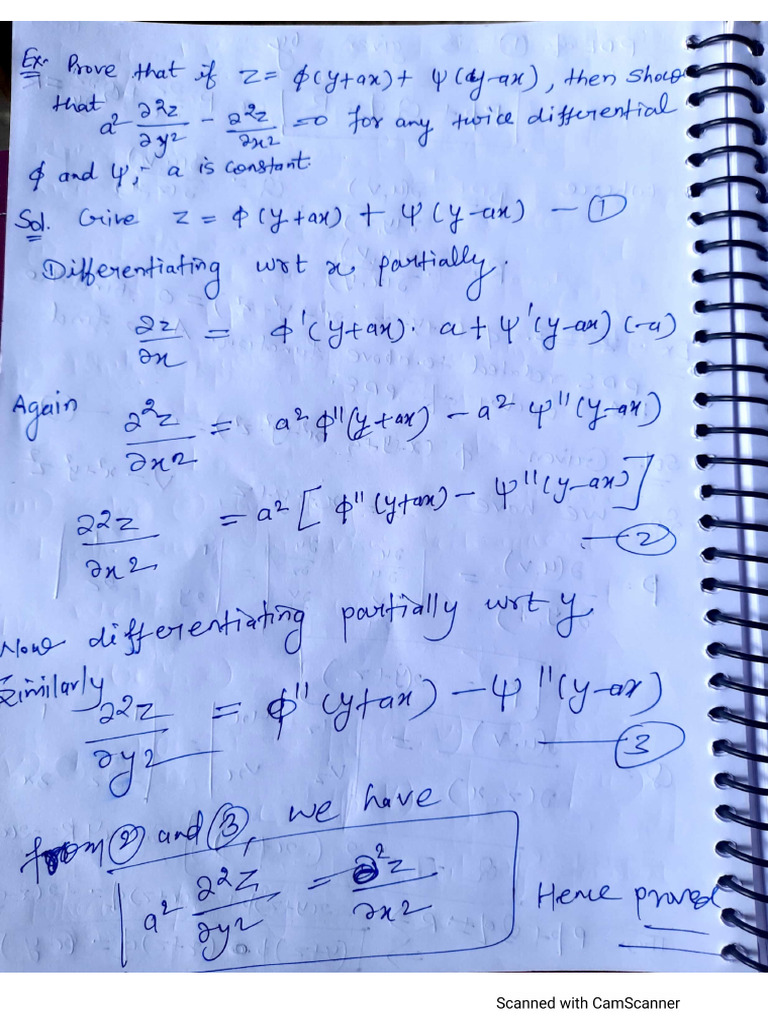 Ex. Prove that if z = φ(y+ax) + ψ(y-ax), then show
that a² ∂²z/∂y² - ∂²z/∂x² = 0 for any twice differential
φ and ψ, a is constant.
Sol. Give z = φ(y+ax) + ψ(y-ax) — ①
Differentiating wrt x partially.
∂z/∂x = φ'(y+ax). a + ψ'(y-ax) (-a)
Again ∂²z/∂x² = a² φ''(y+ax) - a² ψ''(y-ax)
∂²z/∂x² = a² [ φ''(y+ax) - ψ''(y-ax) ] — ②
Now differentiating partially wrt y
Similarly
∂²z/∂y² = φ''(y+ax) - ψ''(y-ax) — ③
from ② and ③, we have
a² ∂²z/∂y² = ∂²z/∂x² Hence proved
Scanned with CamScanner